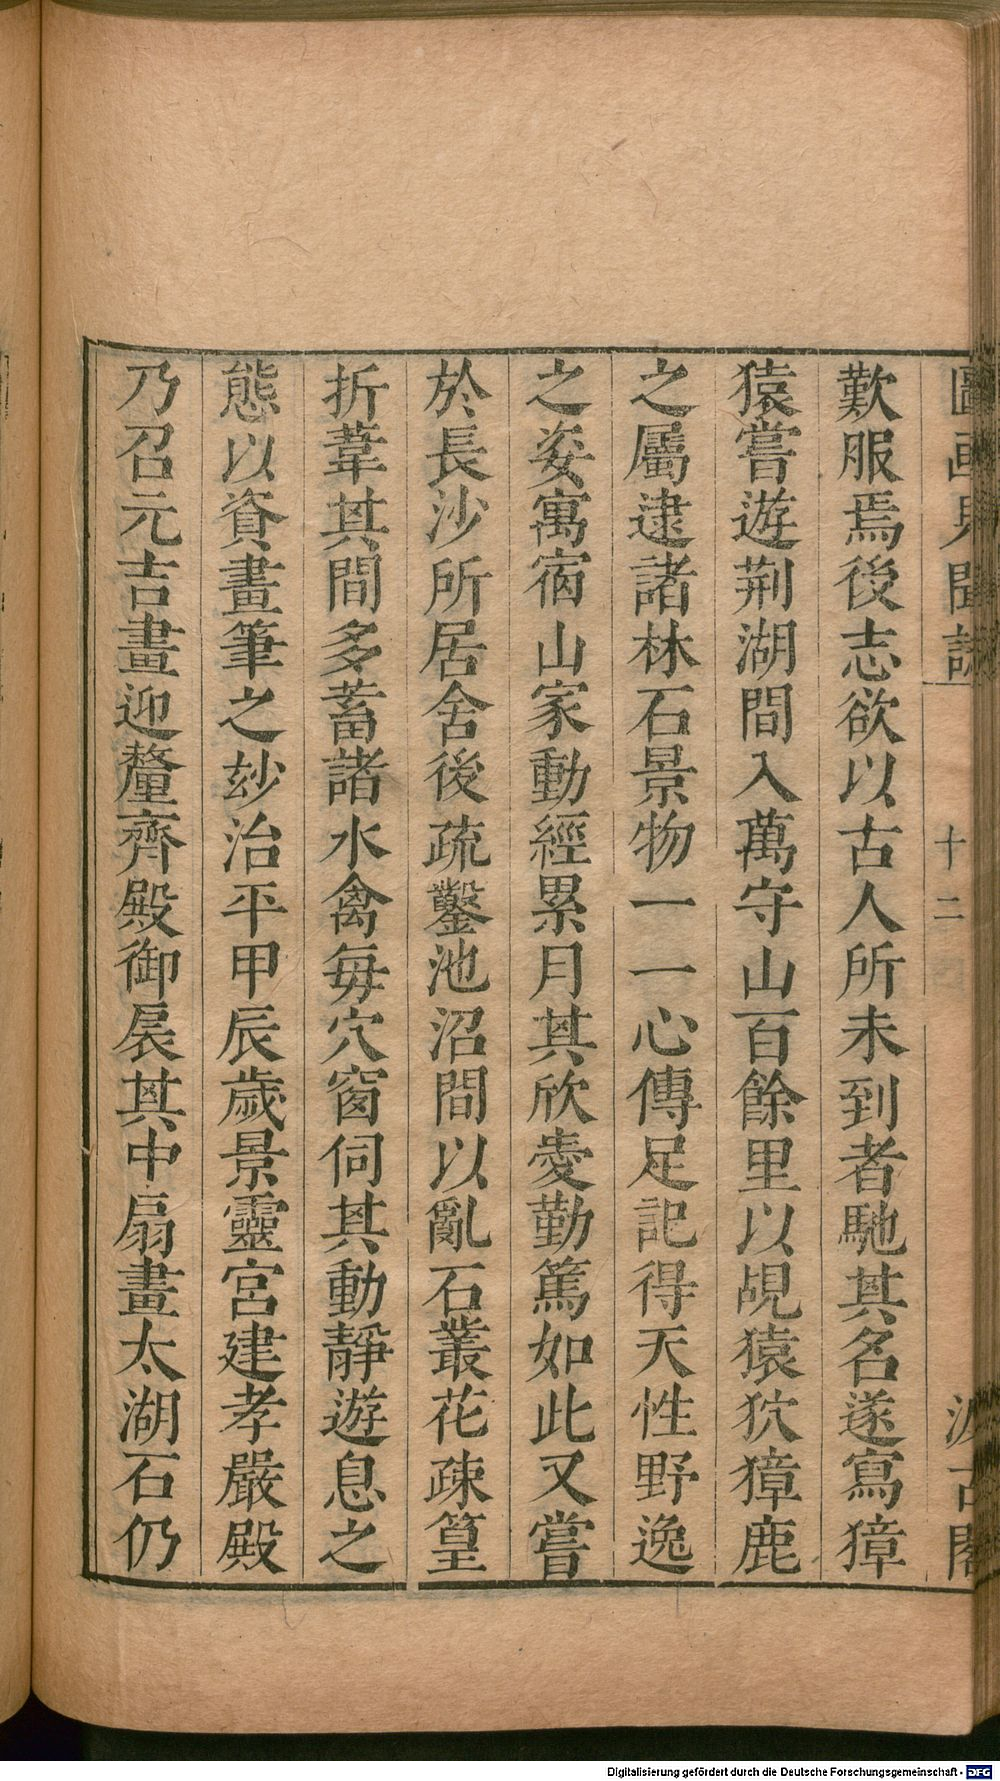 圖画見聞誌 十二 汲古閣
歎服焉後志欲以古人所未到者馳其名遂寫獐
猿嘗遊荆湖間入萬守山百餘里以覘猿狖獐鹿
之屬逮諸林石景物一一心傳足記得天性野逸
之姿寓宿山家動經累月其欣愛勤篤如此又嘗
於長沙所居舍後疏鑿池沼間以亂石叢花疎篁
折葦其間多蓄諸水禽每穴窗伺其動靜遊息之
態以資畫筆之玅治平甲辰歲景靈宮建孝嚴殿
乃召元吉畫迎釐齊殿御扆其中扇畫太湖石仍
Digitalisierung gefördert durch die Deutsche Forschungsgemeinschaft - DFG